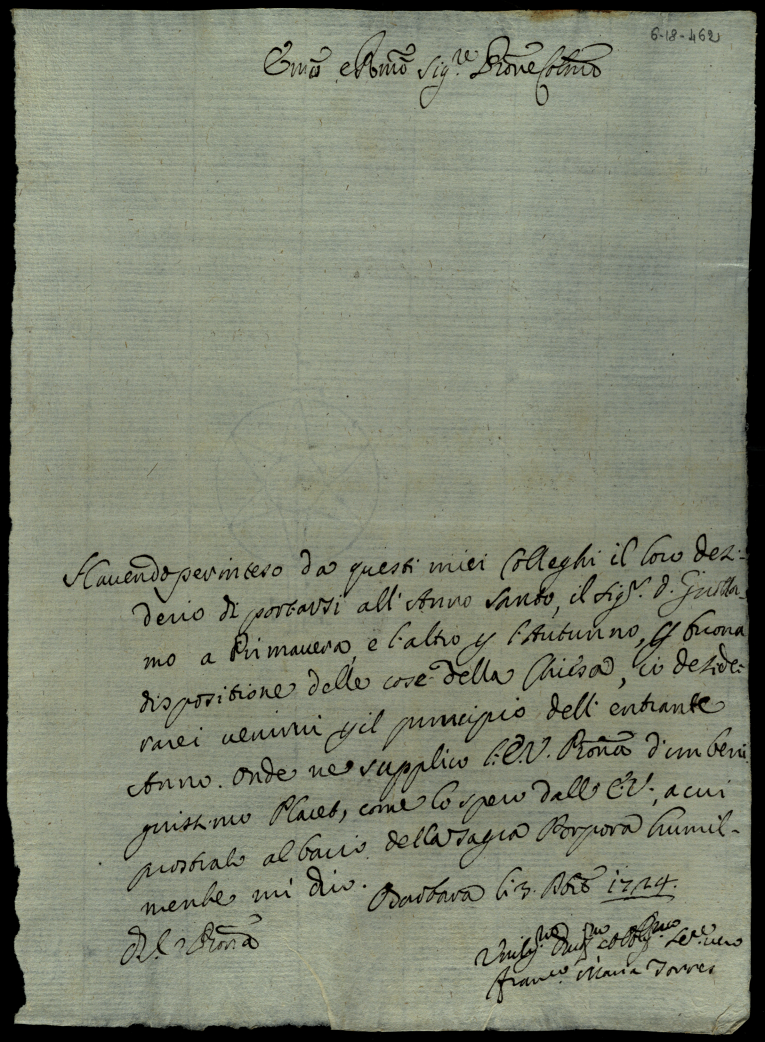 6-18-462
Em̃o e Rm̃o Sig.re Pr̃one Col̃mo
Havendo per inteso da questi miei Colleghi il loro desi-
derio di portarsi all'Anno Santo, il Sig.r D. 
mo a Primavera, e l'altro p l'Autunno, p buona
dispositione delle cose della Chiesa, io deside-
rarei venirvi p il principio dell'entrante
Anno. Onde ne supplico l'E.V. Pr̃oña d'un beni
gnissimo Placet, come lo spero dall'E.V., a cui
prostrato al bacio della sagra Porpora humil-
mente mi dico. li 3. 1724.
D.V. Pr̃oña
Umil.mo Dev.mo et Obblig.mo Ser.re vero
Franc.o Maria Torres